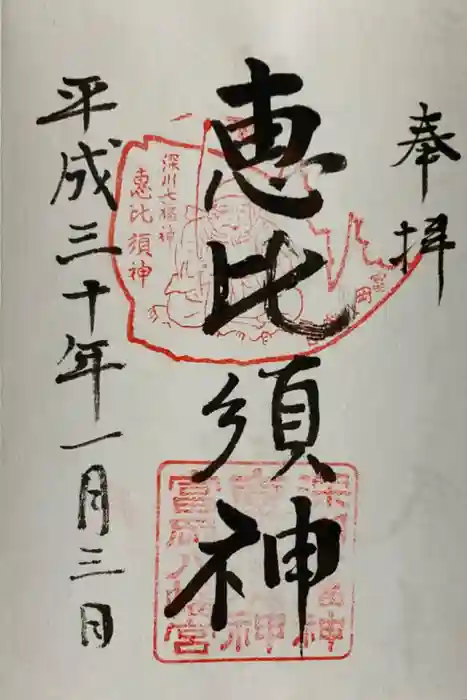 奉拝
恵比須神
平成三十年一月三日
深川七福神
恵比須神
富岡八幡宮